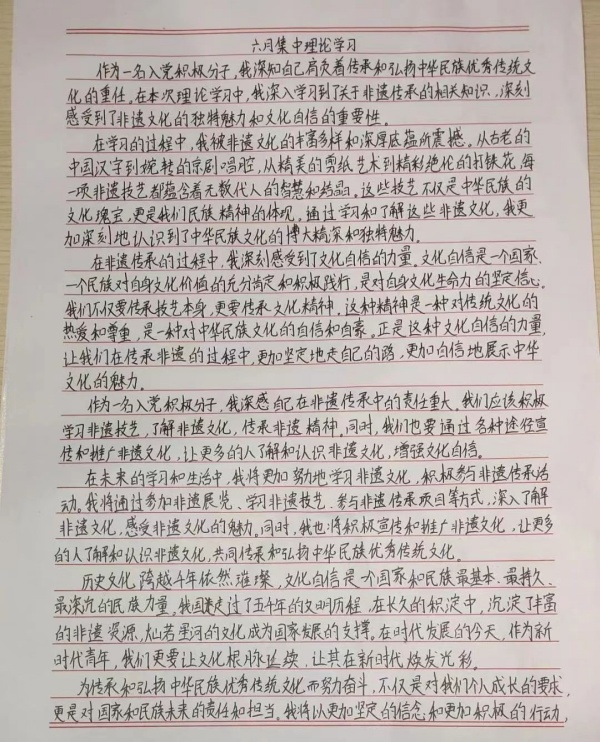 六月集中理论学习
作为一名入党积极分子,我深知自己肩负着传承和弘扬中华民族优秀传统文
化的重任。在本次理论学习中,我深入学习到了关于非遗传承的相关知识、深刻
感受到了非遗文化的独特魅力和文化自信的重要性。
在学习的过程中,我被非遗文化的丰富多样和深厚底蕴所震撼。从古老的
中国汉字到婉转的京剧唱腔,从精美的剪纸艺术到精彩绝伦的打铁花,每
一项非遗技艺都蕴含着无数代人的智慧和结晶。这些技艺不仅是中华民族的
文化瑰宝,更是我们民族精神的体现。通过学习和了解这些非遗文化,我更
加深刻地认识到了中华民族文化的博大精深和独特魅力。
在非遗传承的过程中,我深刻感受到了文化自信的力量。文化自信是一个国家、
一个民族对自身文化价值的充分肯定和积极践行,是对自身文化生命力的坚定信心。
我们不仅要传承技艺本身,更要传承文化精神。这种精神是一种对传统文化的
热爱和尊重,是一种对中华民族文化的自信和自豪。正是这种文化自信的力量,
让我们在传承非遗的过程中,更加坚定地走自己的路,更加自信地展示中华
文化的魅力。
作为一名入党积极分子,我深感自己在非遗传承中的责任重大。我们应该积极
学习非遗技艺,了解非遗文化,传承非遗精神。同时,我们也要通过各种途径宣
传和推广非遗文化,让更多的人了解和认识非遗文化,增强文化自信。
在未来的学习和生活中,我将更加努力地学习非遗文化,积极参与非遗传承活
动。我将通过参加非遗展览、学习非遗技艺、参与非遗传承项目等方式,深入了解
非遗文化,感受非遗文化的魅力。同时,我也将积极宣传和推广非遗文化,让更多
的人了解和认识非遗文化,共同传承和弘扬中华民族优秀传统文化。
历史文化,跨越千年依然璀璨,文化自信是一个国家和民族最基本、最持久、
最深沉的民族力量。我国走过了五千年的文明历程,在长久的积淀中,沉淀了丰富
的非遗资源,灿若星河的文化成为国家发展的支撑。在时代发展的今天,作为新
时代青年,我们更要让文化根脉延续,让其在新时代焕发光彩。
为传承和弘扬中华民族优秀传统文化而努力奋斗,不仅是对我们个人成长的要求,
更是对国家和民族未来的责任和担当。我将以更加坚定的信念和更加积极的行动,